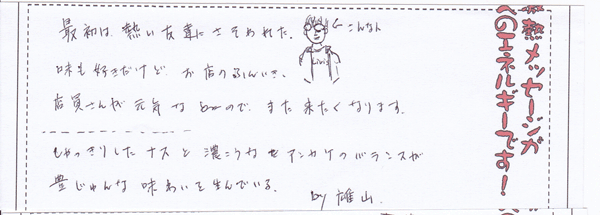 最初は、熱い友達にさそわれた。 ←こんな人
味も好きだけど お店のふんいき、
店員さんが元気なので、また来たくなります。
しゃっきりしたナスと濃こうなアンカケのバランスが
豊じゅんな味わいを生んでいる。 by 雄山.
熱メッセージが
へのエネルギーです!